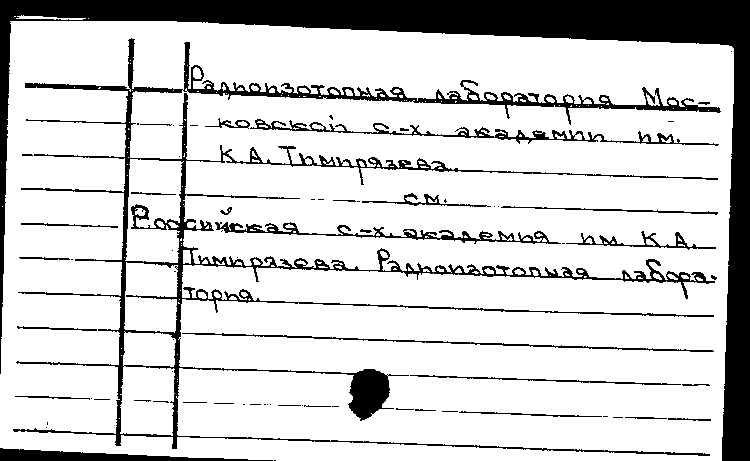 Радиоизотопная лаборатория Мос-
ковской с.-х. академии им.
К.А. Тимирязева.
см.
Российская с.-х. академия им. К.А.
Тимирязева. Радиоизотопная лабора-
тория.